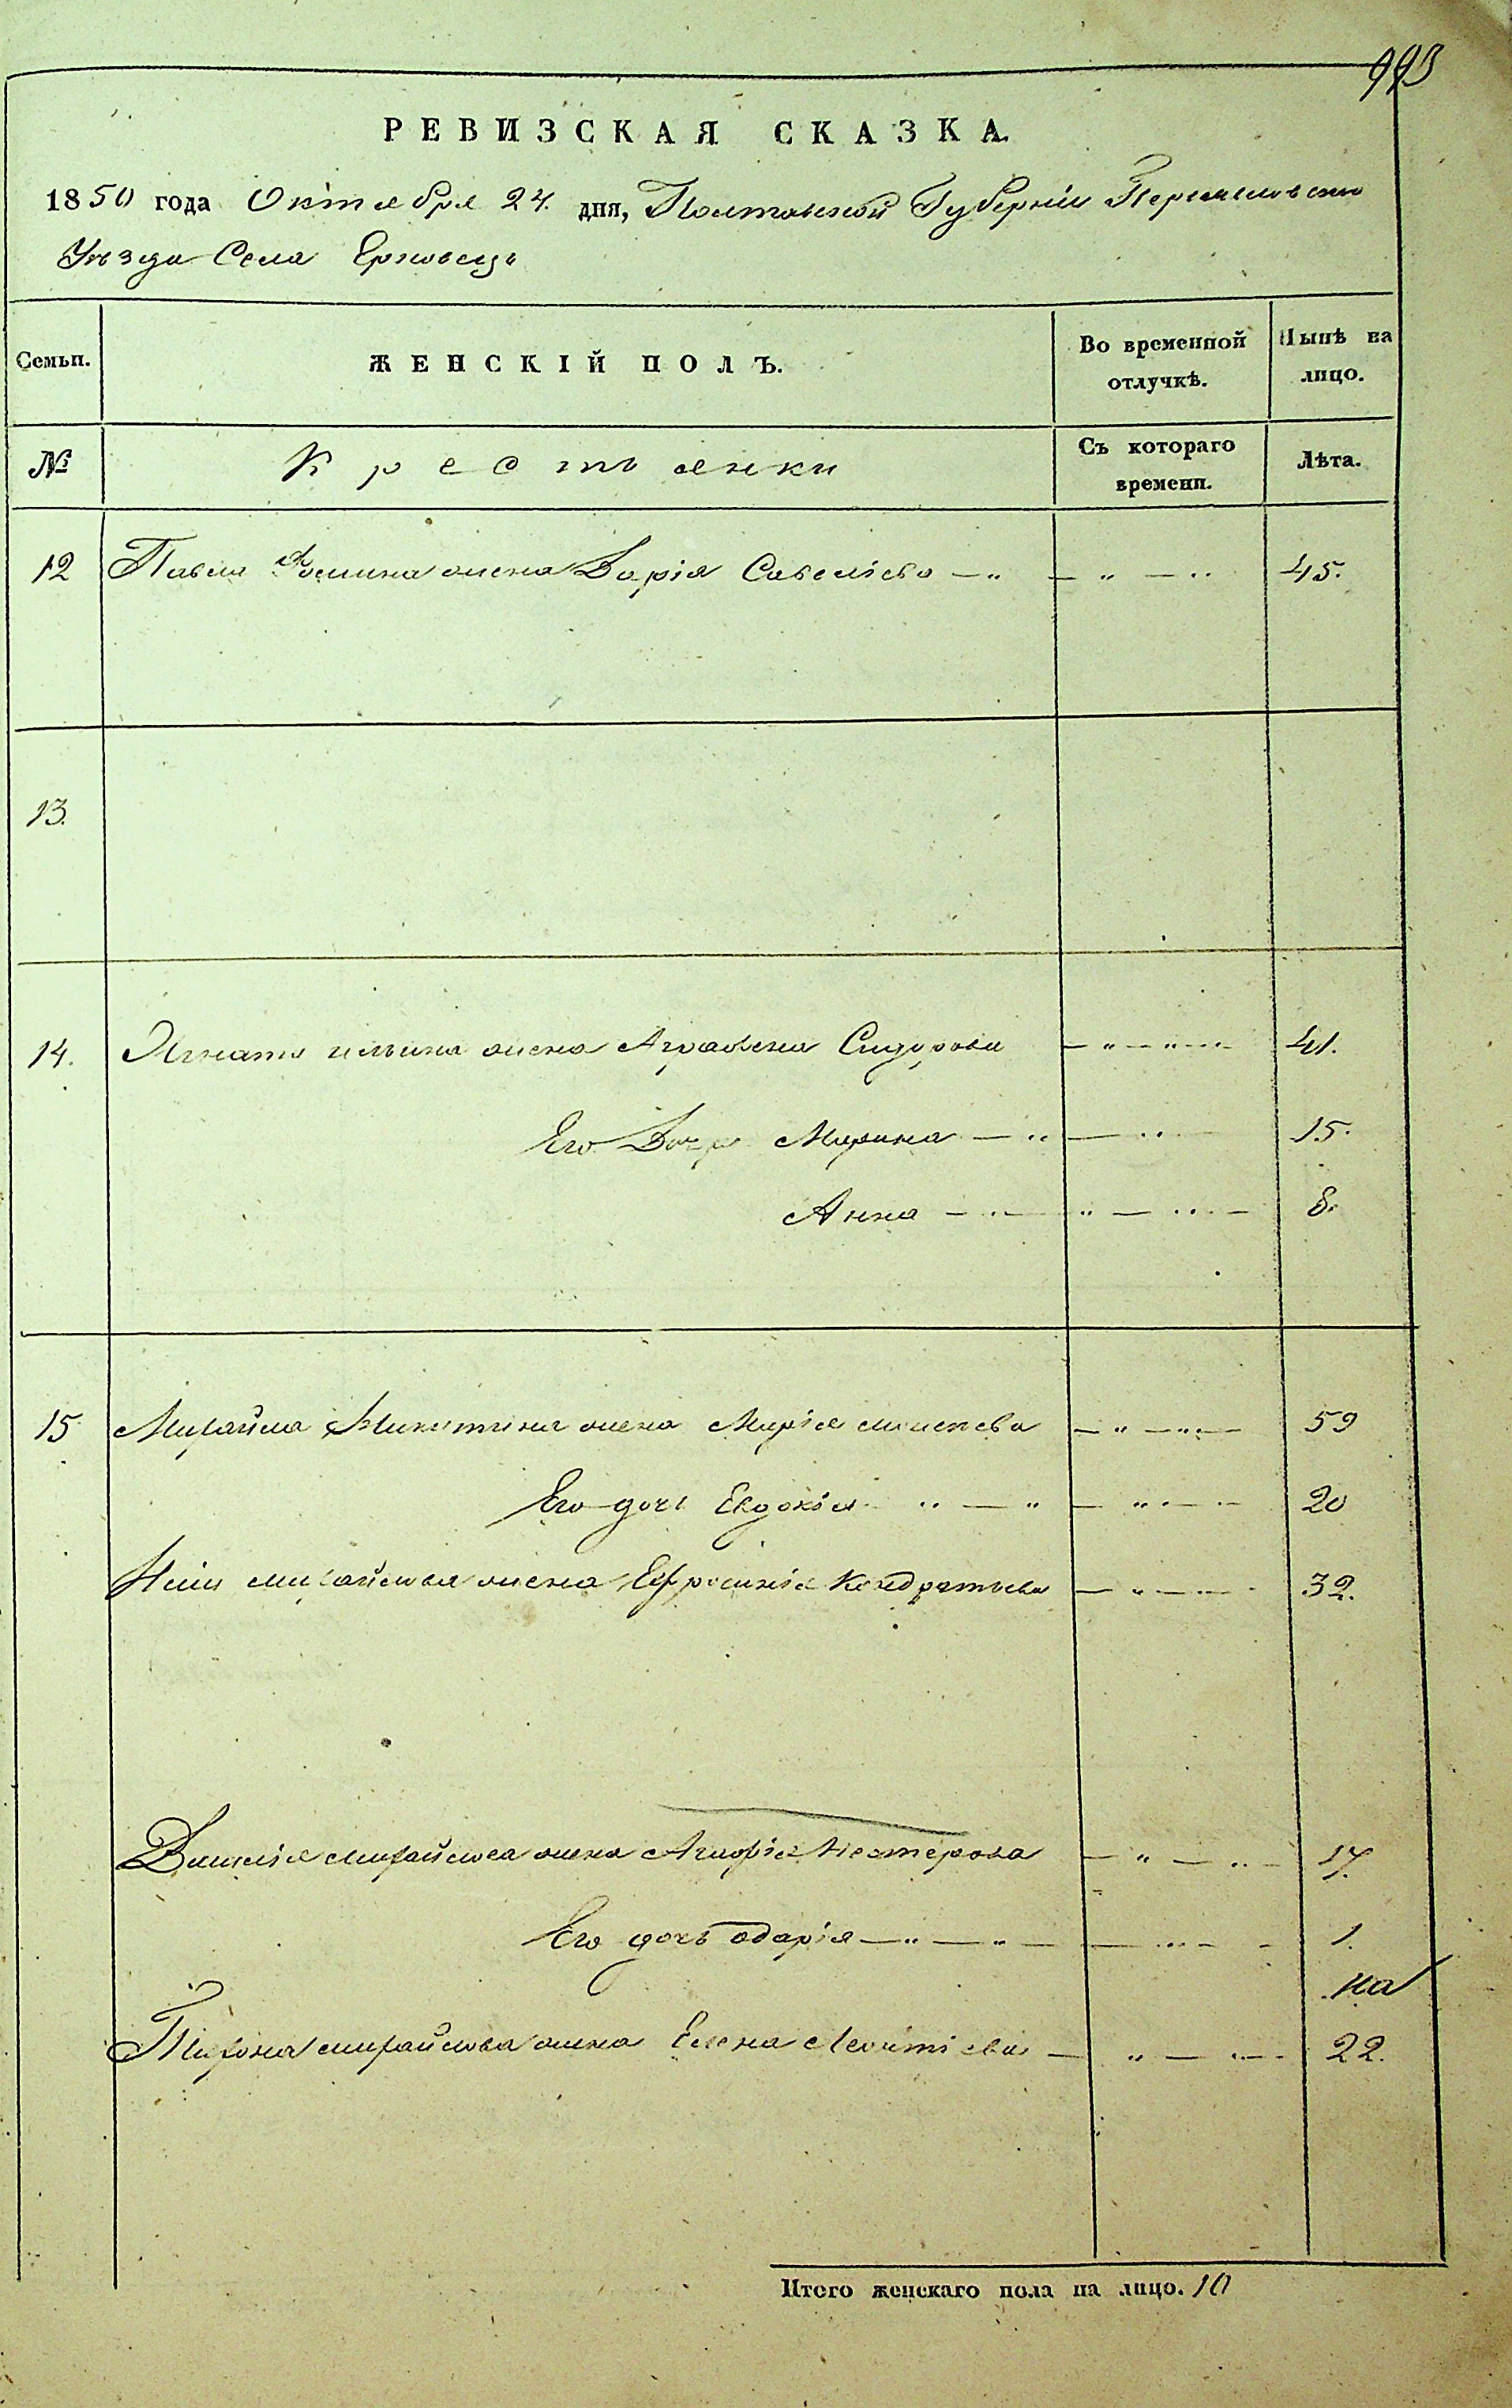 993
РЕВИЗСКАЯ СКАЗКА
1850 года Октября 24. дня, Полтавской Губерніи Переяславского
Уѣзда Села Ерковецъ
Семьи. ЖЕНСКІЙ ПОЛЪ. Во временной отлучкѣ. Нынѣ на лицо.
№ Крестьянки Съ котораго времени. Лѣта.
12 Павла Фомина жена Дарія Савеліева — „ — „ — „ 45.
13.
14. Игната ильина жена Аграфена Сидорова — „ — „ — 41.
Его Дочр Марина — „ — „ 15.
Анна — „ — „ — „ — 8.
15 Михайла Микитина жена Марія моисѣева — „ — „ — 59
Его дочь Евдокія „ — „ — „ — 20
михайлова жена Ефросинія Кондратьева — „ — „ — 32.
Василія михайлова жена Агафія Нестерова — „ — „ — 17.
Его дочь одарія — „ — „ — — „ — 1.
на
Тихона михайлова жена Елена Леонтіева — „ — „ — 22.
Итого женскаго пола на лицо. 10